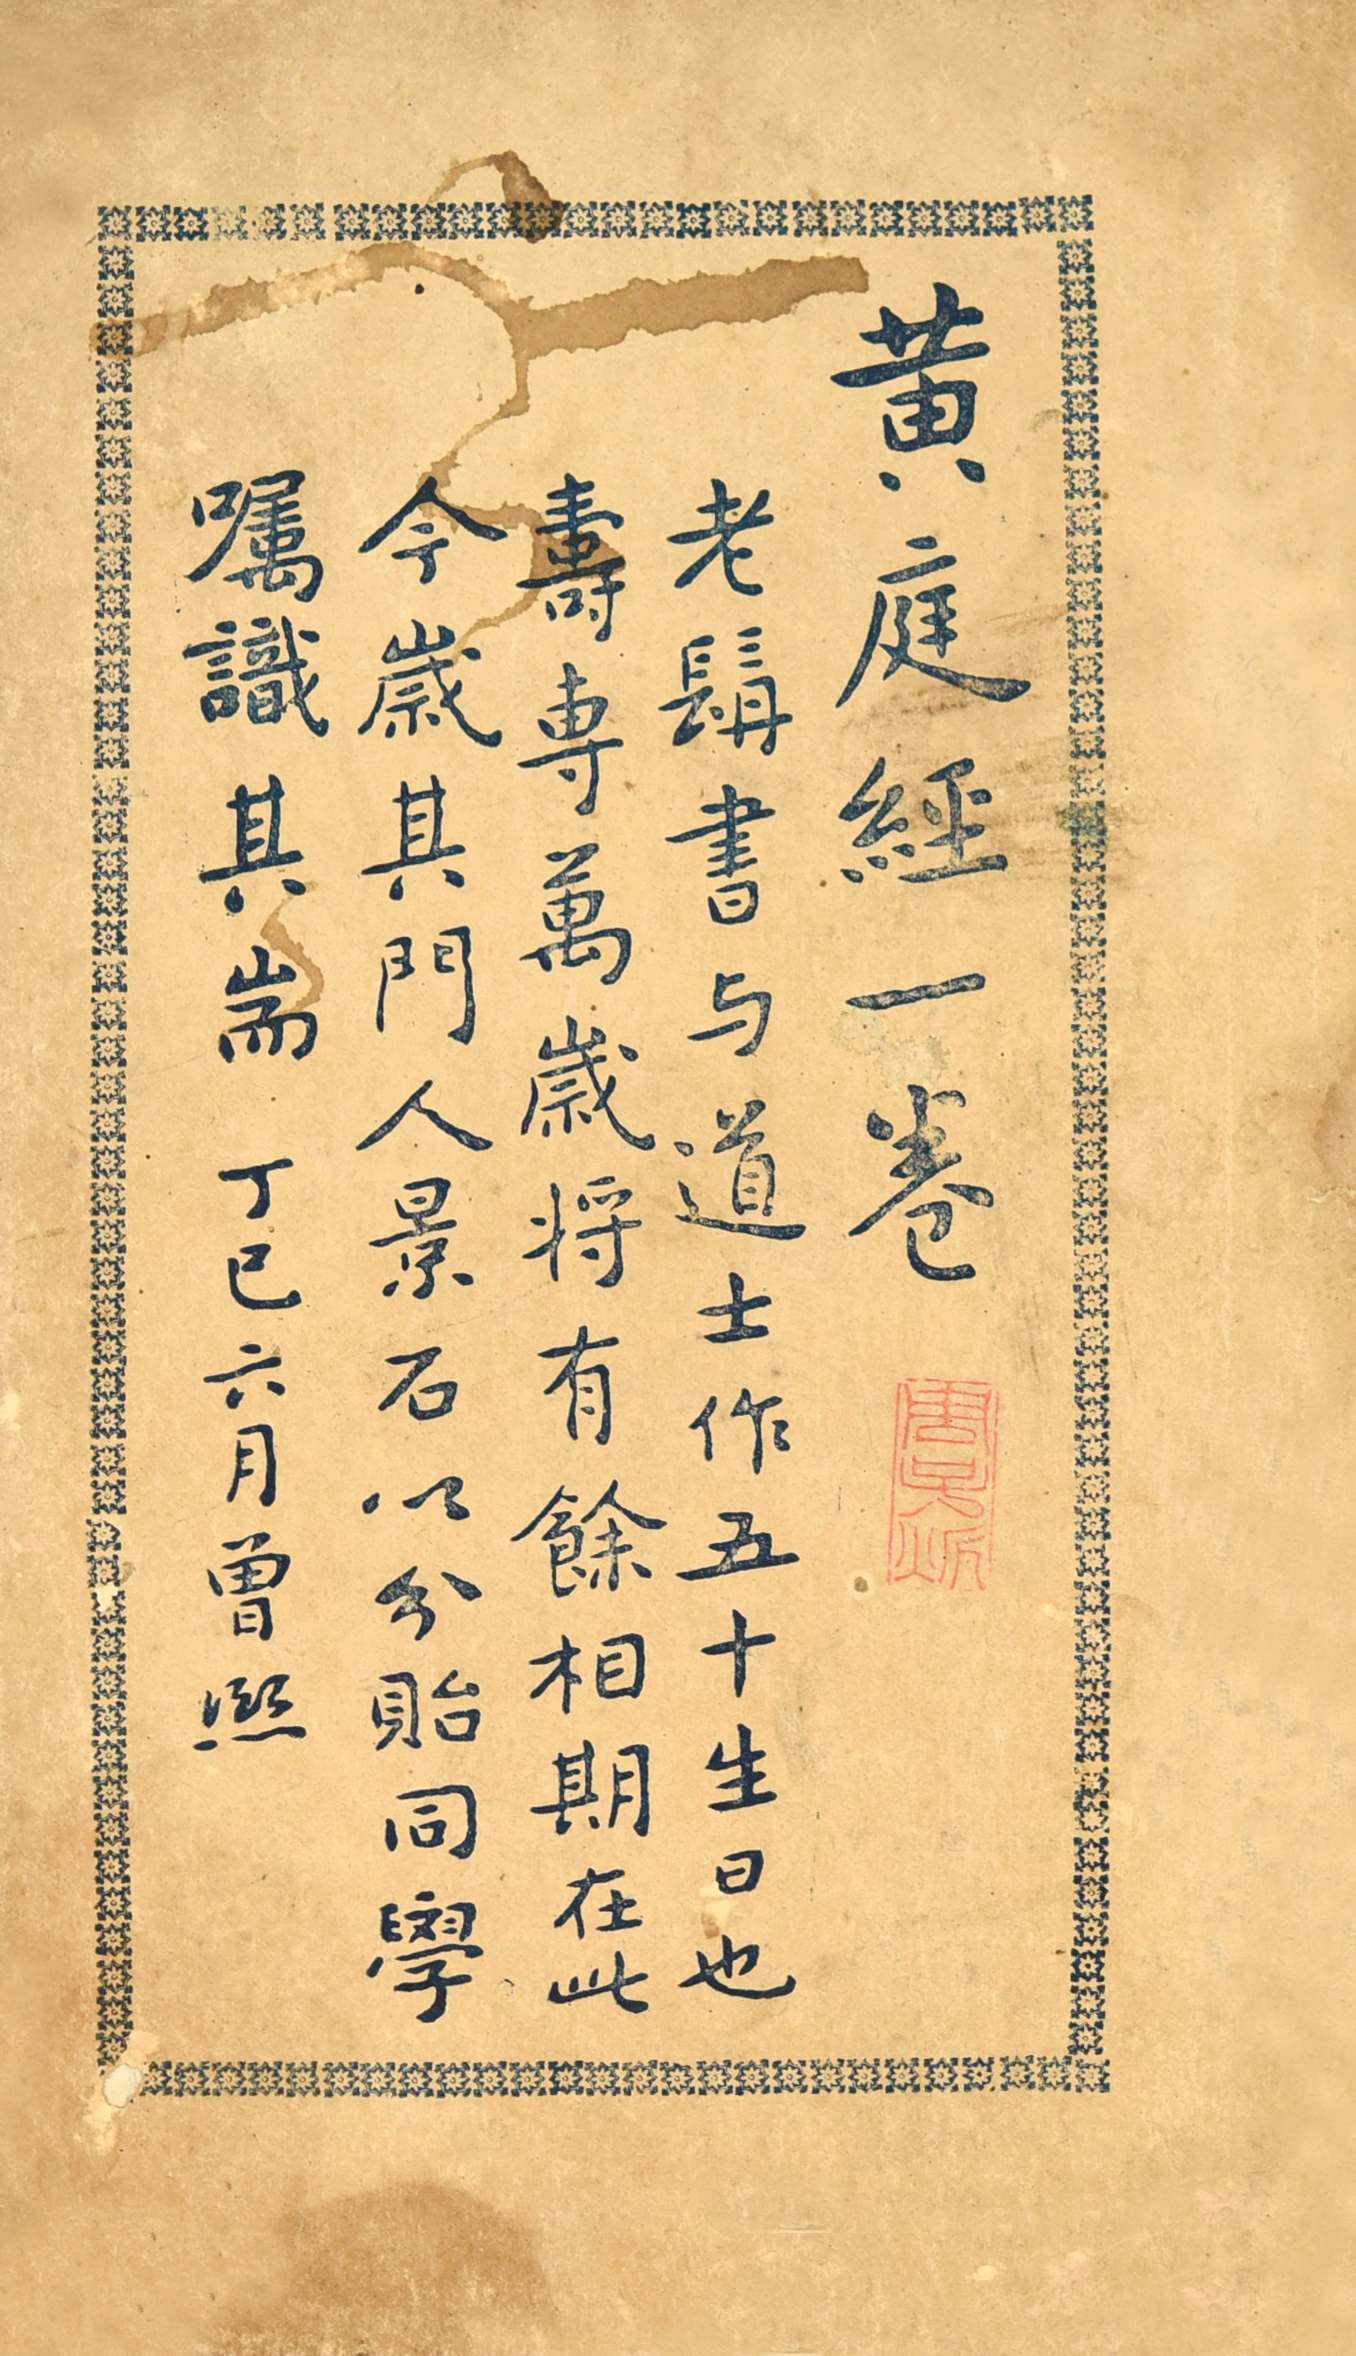 黄庭經一卷
老髯書与道士作五十生日也
壽專萬歲将有餘相期在此
今歲其門人景石以分貽同學
嘱識其耑 丁巳六月曾熙